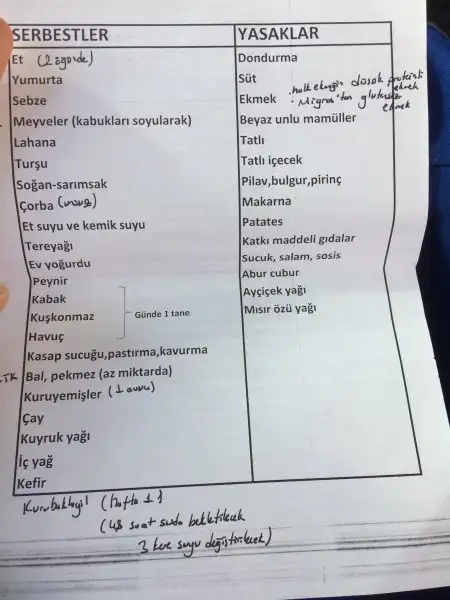 SERBESTLER
Et (2 öğünde)
Yumurta
Sebze
Meyveler (kabukları soyularak)
Lahana
Turşu
Soğan-sarımsak
Çorba (unsuz)
Et suyu ve kemik suyu
Tereyağı
Ev yoğurdu
Peynir
Kabak
Kuşkonmaz
Havuç
Günde 1 tane
Kasap sucuğu,pastırma,kavurma
Bal, pekmez (az miktarda)
Kuruyemişler (1 avuç)
Çay
Kuyruk yağı
İç yağ
Kefir
YASAKLAR
Dondurma
Süt
Ekmek
. halk ekmeğin düşük proteinli ekmek
. Migros'tan glutensiz ekmek
Beyaz unlu mamüller
Tatlı
Tatlı içecek
Pilav,bulgur,pirinç
Makarna
Patates
Katkı maddeli gıdalar
Sucuk, salam, sosis
Abur cubur
Ayçiçek yağı
Mısır özü yağı
Kurubaklagil (hafta 1)
(48 saat suda bekletilecek
3 kere suyu değiştirilecek)